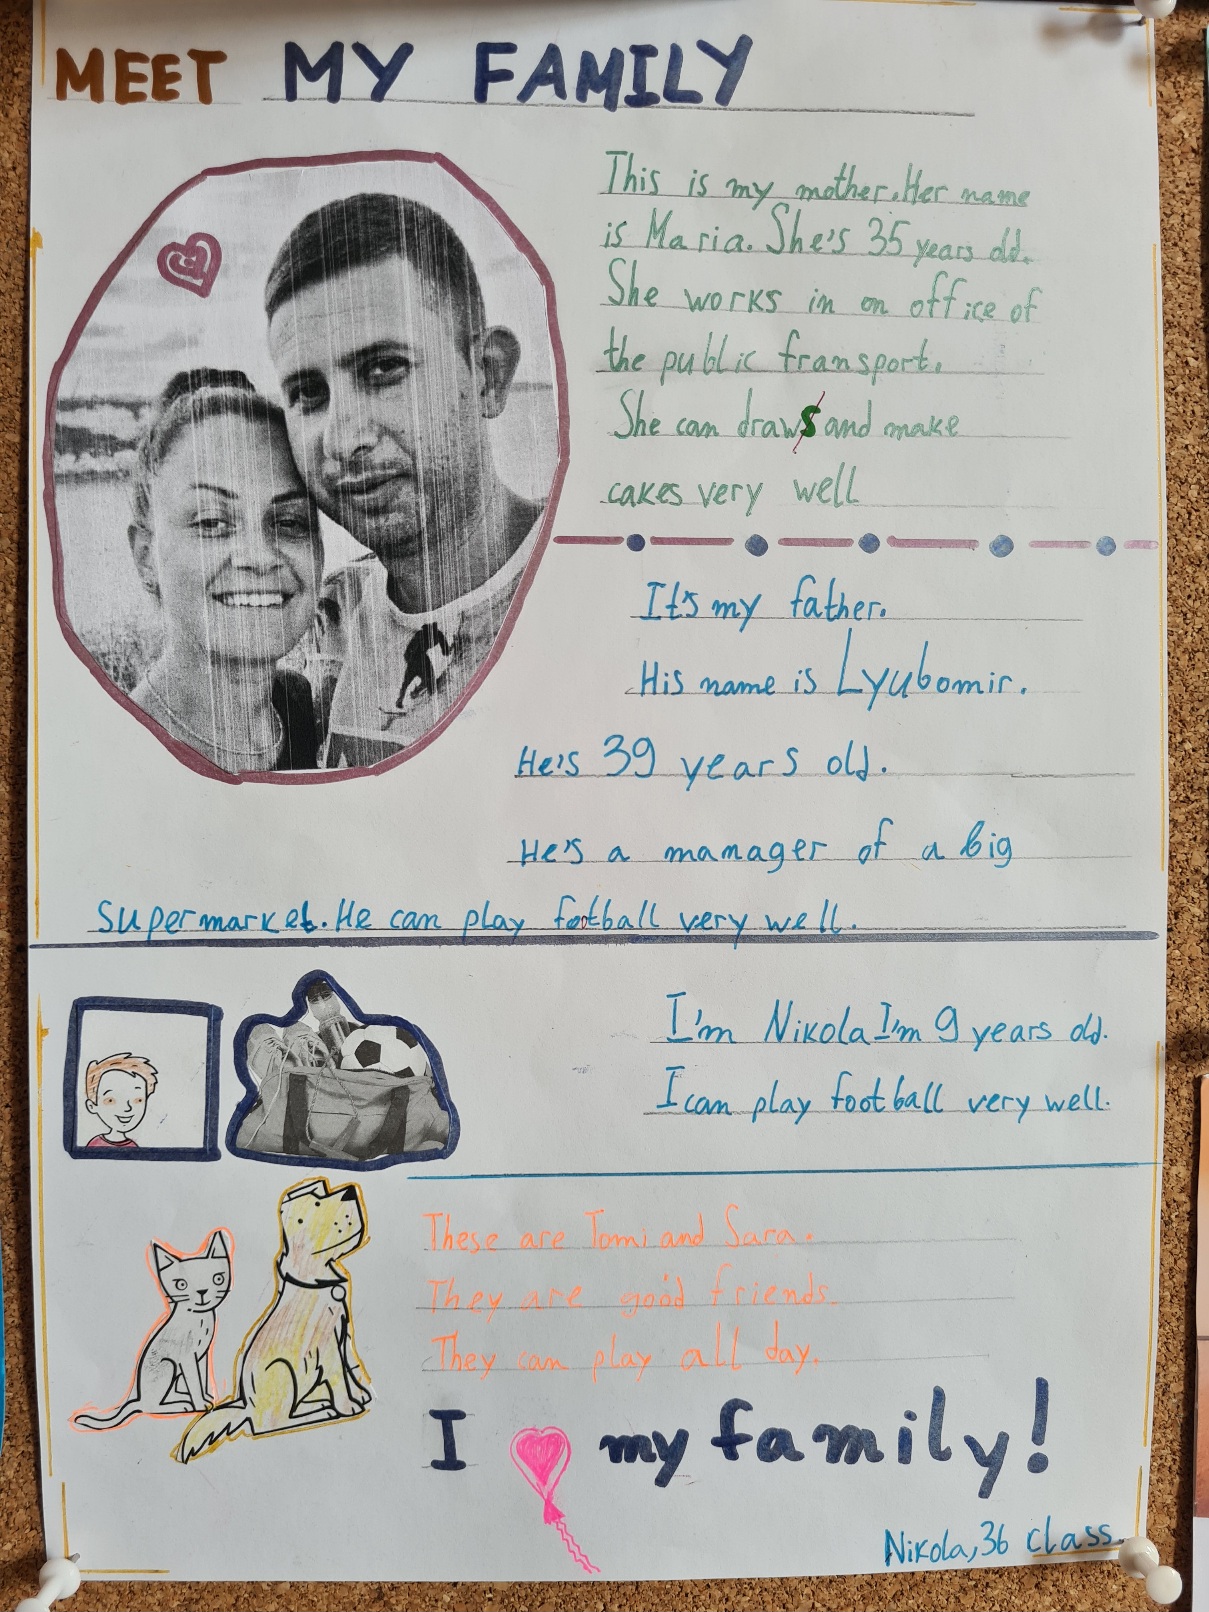 MEET MY FAMILY
This is my mother. Her name
is Maria. She's 35 years old.
She works in on office of
the public transport.
She can draws and make
cakes very well
It's my father.
His name is Lyubomir.
He's 39 years old.
He's a manager of a big
supermarket. He can play football very well.
I'm Nikola I'm 9 years old.
I can play football very well.
These are Tomi and Sara.
They are good friends.
They can play all day.
I my family!
Nikola, 3б class.